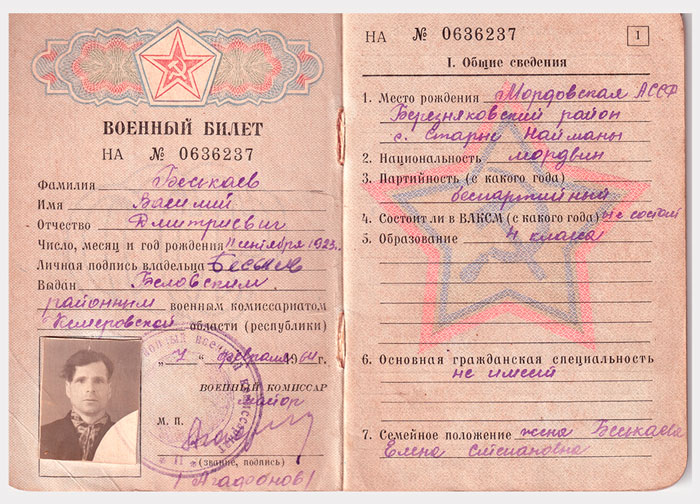 ВОЕННЫЙ БИЛЕТ
НА № 0636237
Фамилия Беськаев
Имя Василий
Отчество Дмитриевич
Число, месяц и год рождения 11 сентября 1923г.
Личная подпись владельца
Выдан Беловским
районным военным комиссариатом
Кемеровской области (республики)
„7" февраля 1964г.
ВОЕННЫЙ КОМИССАР
майор
М. П.
(звание, подпись)
/Агафонов/
НА № 0636237 1
I. Общие сведения
1. Место рождения Мордовская АССР
Березняковский район
с. Старые Найманы
2. Национальность мордвин
3. Партийность (с какого года)
беспартийный
4. Состоит ли в ВЛКСМ (с какого года) не состоит
5. Образование 4 класса
6. Основная гражданская специальность
не имеет
7. Семейное положение жена Беськаева
Елена Степановна